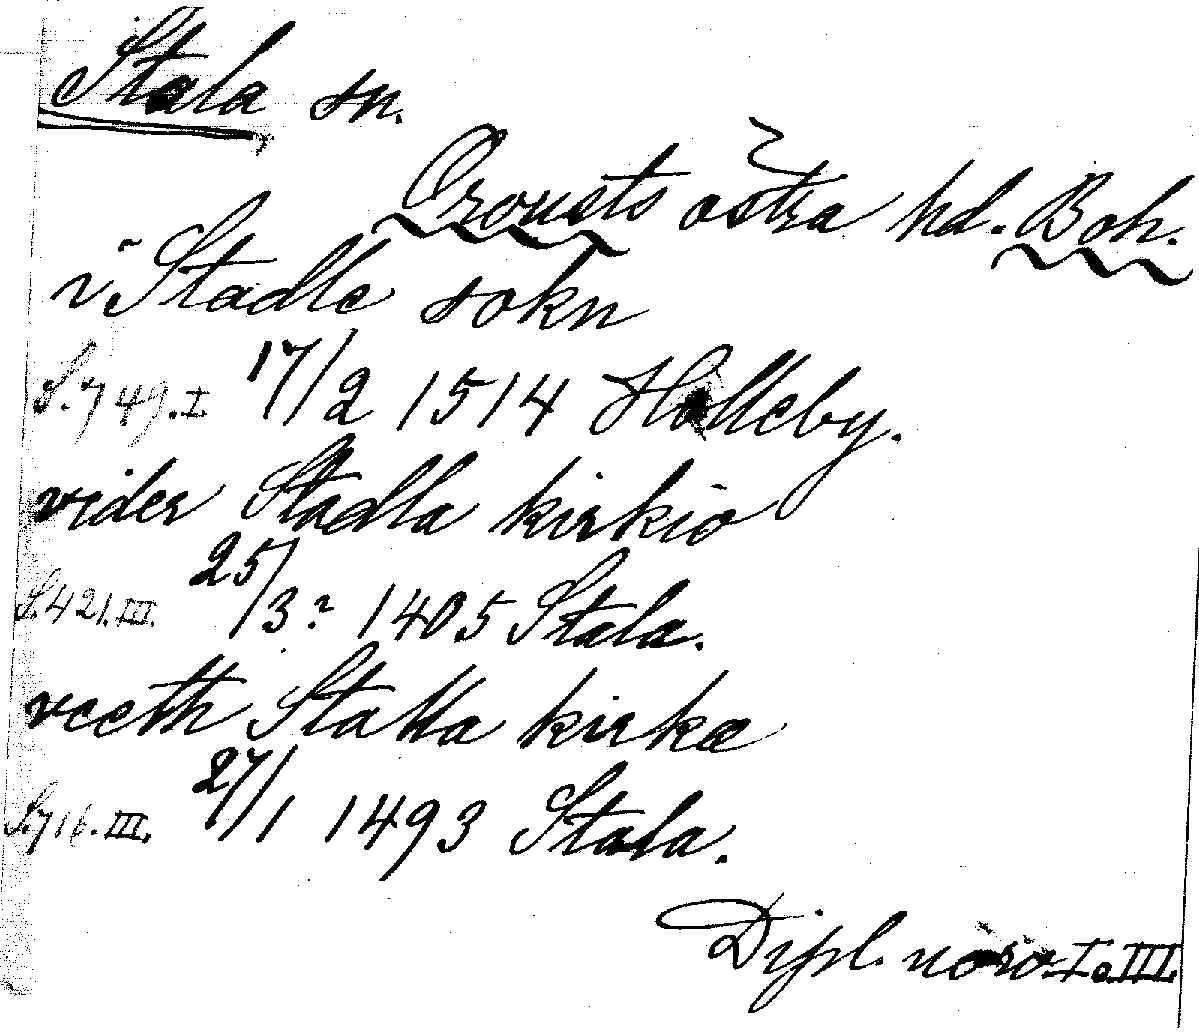 Stala sn.
Orousts östra hd. Boh.
i Stadle sokn
S. 749. I 17/2 1514 Holleby.
vider Stadla kirkio
S. 421. III. 25/3? 1405 Stala.
veeth Stalla kirkæ
S. 716. III. 27/1 1493 Stala.
Dipl. norv. I. o. III.